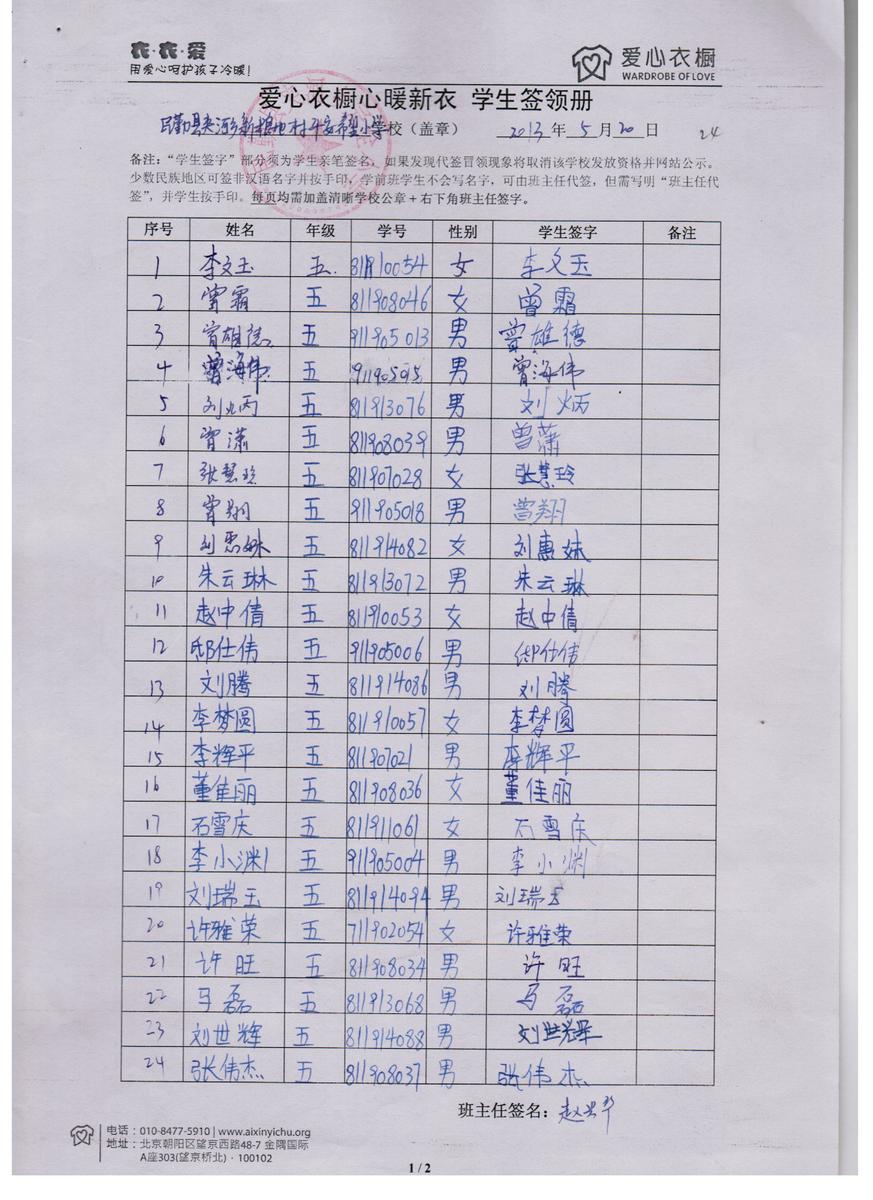 衣·衣·爱
用爱心呵护孩子冷暖!
爱心衣橱
WARDROBE OF LOVE
爱心衣橱心暖新衣 学生签领册
民勤县夹河乡 村平安希望小学校（盖章） 2013年5月20日 24
备注：“学生签字”部分须为学生亲笔签名，如果发现代签冒领现象将取消该学校发放资格并网站公示。
少数民族地区可签非汉语名字并按手印，学前班学生不会写名字，可由班主任代签，但需写明“班主任代
签”，并学生按手印。每页均需加盖清晰学校公章+右下角班主任签字。
序号 姓名 年级 学号 性别 学生签字 备注
1 李文玉 五. 811910054 女 李文玉
2 曾霜 五 811908046 女 曾霜
3 曾雄德 五 911905013 男 曾雄德
4 曾海伟 五 男 曾海伟
5 刘炳 五 811913076 男 刘炳
6 曾潇 五 811908039 男 曾萧
7 张慧玲 五 811907028 女 张慧玲
8 曾翔 五 911905018 男 曾翔
9 刘惠妹 五 811914082 女 刘惠妹
10 朱云琳 五 811913072 男 朱云琳
11 赵中倩 五 811910053 女 赵中倩
12 邸仕伟 五 911905006 男 邸仕伟
13 刘腾 五 811914086 男 刘腾
14 李梦圆 五 811910057 女 李梦圆
15 李辉平 五 811907021 男 李辉平
16 董佳丽 五 811908036 女 董佳丽
17 石雪庆 五 811911061 女 石雪庆
18 李小渊 五 911905004 男 李小渊
19 刘瑞玉 五 811914094 男 刘瑞玉
20 许雅荣 五 711902054 女 许雅荣
21 许旺 五 811908034 男 许旺
22 马磊 五 811913068 男 马磊
23 刘世辉 五 811914088 男 刘世辉
24 张伟杰 五 811908037 男 张伟杰
班主任签名：
电话：010-8477-5910 | www.aixinyichu.org
地址：北京朝阳区望京西路48-7 金隅国际
A座303(望京桥北)·100102
1 / 2